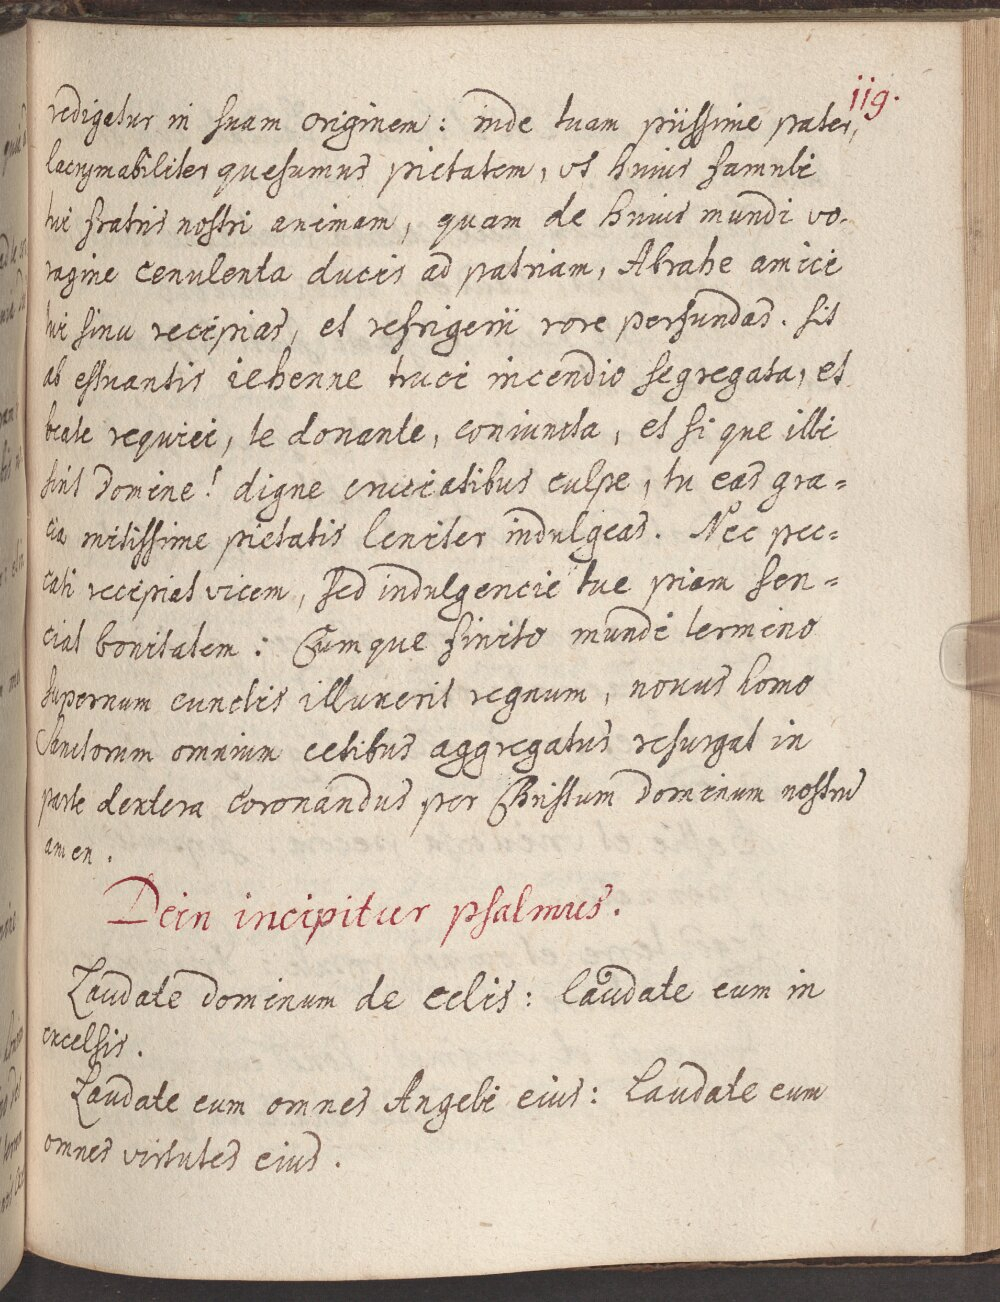 119.
redigatur in suam originem: inde tuam piissime pater,
lacrymabiliter quesumus pietatem, ut huius famuli
tui fratris nostri animam, quam de huius mundi vo-
ragine cenulenta ducis ad patriam, Abrahe amici
tui sinu recipias, et refrigerii rore perfundas. sit
ab estuantis iehenne truci incendio segregata, et
beate requiei, te donante, coniuncta, et si que illi
sint domine! digne cruciatibus culpe, tu eas gra=
cia mitissime pietatis leniter indulgeas. Nec pec=
cati recipiat vicem, sed indulgencie tue piam sen=
ciat bonitatem: Cumque finito mundi termino
supernum cunctis illuxerit regnum, novus homo
Sanctorum omnium cetibus aggregatus resurgat in
parte dextera coronandus per Christum dominum nostrū
amen.
Dein incipitur psalmus.
Laudate dominum de celis: laudate eum in
excelsis.
Laudate eum omnes Angeli eius: Laudate eum
omnes virtutes eius.